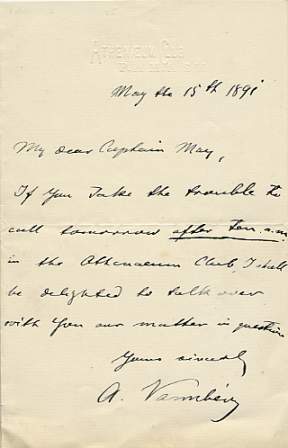 Athenæum Club
May the 15th 1891
My dear Captain May,
If you take the trouble to
call tomorrow after ten a.m.
in the Athenaeum Club, I shall
be delighted to talk over
with you our matter in question
Yours sincerely
A. Vambéry